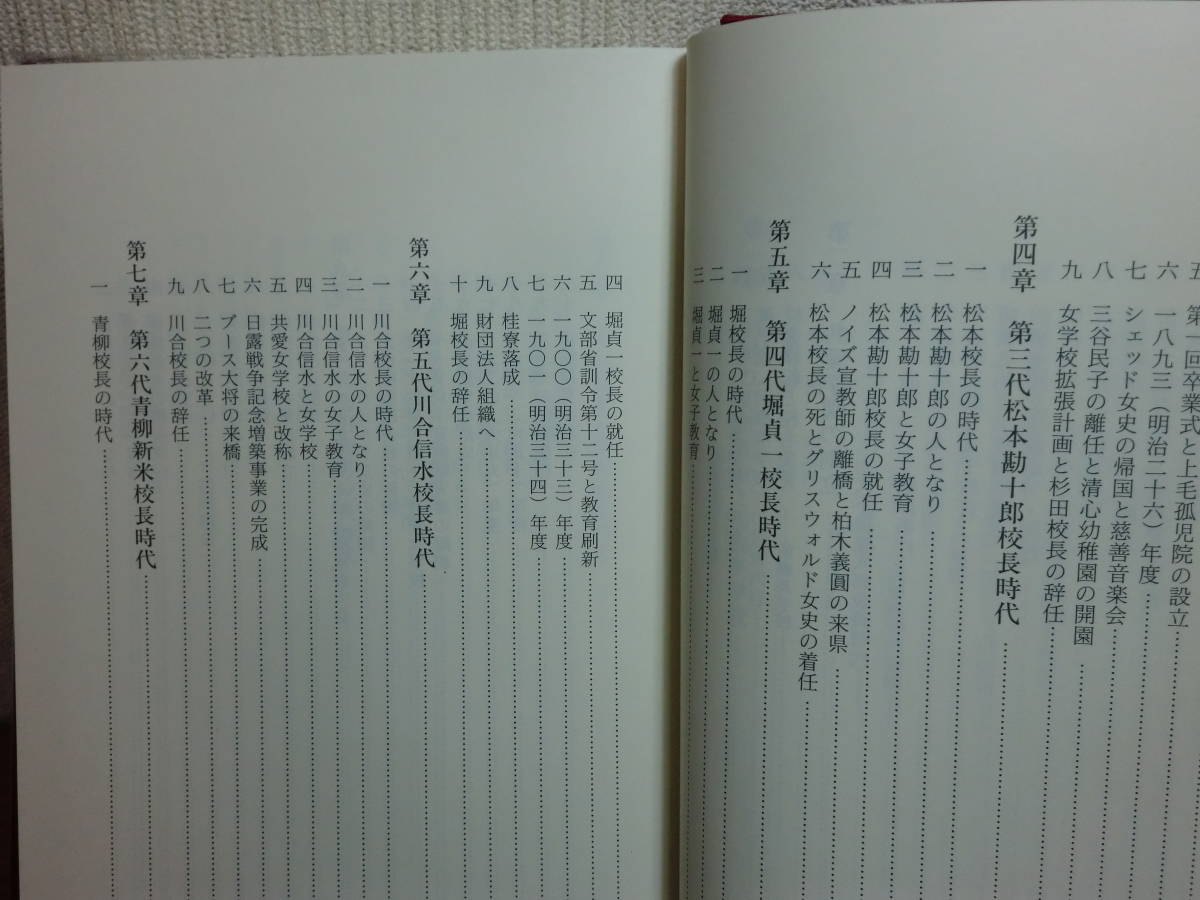 五 第一回卒業式と上毛孤児院の設立
六 一八九三（明治二十六）年度
七 シェッド女史の帰国と慈善音楽会
八 三谷民子の離任と清心幼稚園の開園
九 女学校拡張計画と杉田校長の辞任
第四章 第三代松本勘十郎校長時代
一 松本校長の時代
二 松本勘十郎の人となり
三 松本勘十郎と女子教育
四 松本勘十郎校長の就任
五 ノイズ宣教師の離橋と柏木義圓の来県
六 松本校長の死とグリスウォルド女史の着任
第五章 第四代堀貞一校長時代
一 堀校長の時代
二 堀貞一の人となり
三 堀貞一と女子教育
四 堀貞一校長の就任
五 文部省訓令第十二号と教育刷新
六 一九〇〇（明治三十三）年度
七 一九〇一（明治三十四）年度
八 桂寮落成
九 財団法人組織へ
十 堀校長の辞任
第六章 第五代川合信水校長時代
一 川合校長の時代
二 川合信水の人となり
三 川合信水の女子教育
四 川合信水と女学校
五 共愛女学校と改称
六 日露戦争記念増築事業の完成
七 ブース大将の来橋
八 二つの改革
九 川合校長の辞任
第七章 第六代青柳新米校長時代
一 青柳校長の時代